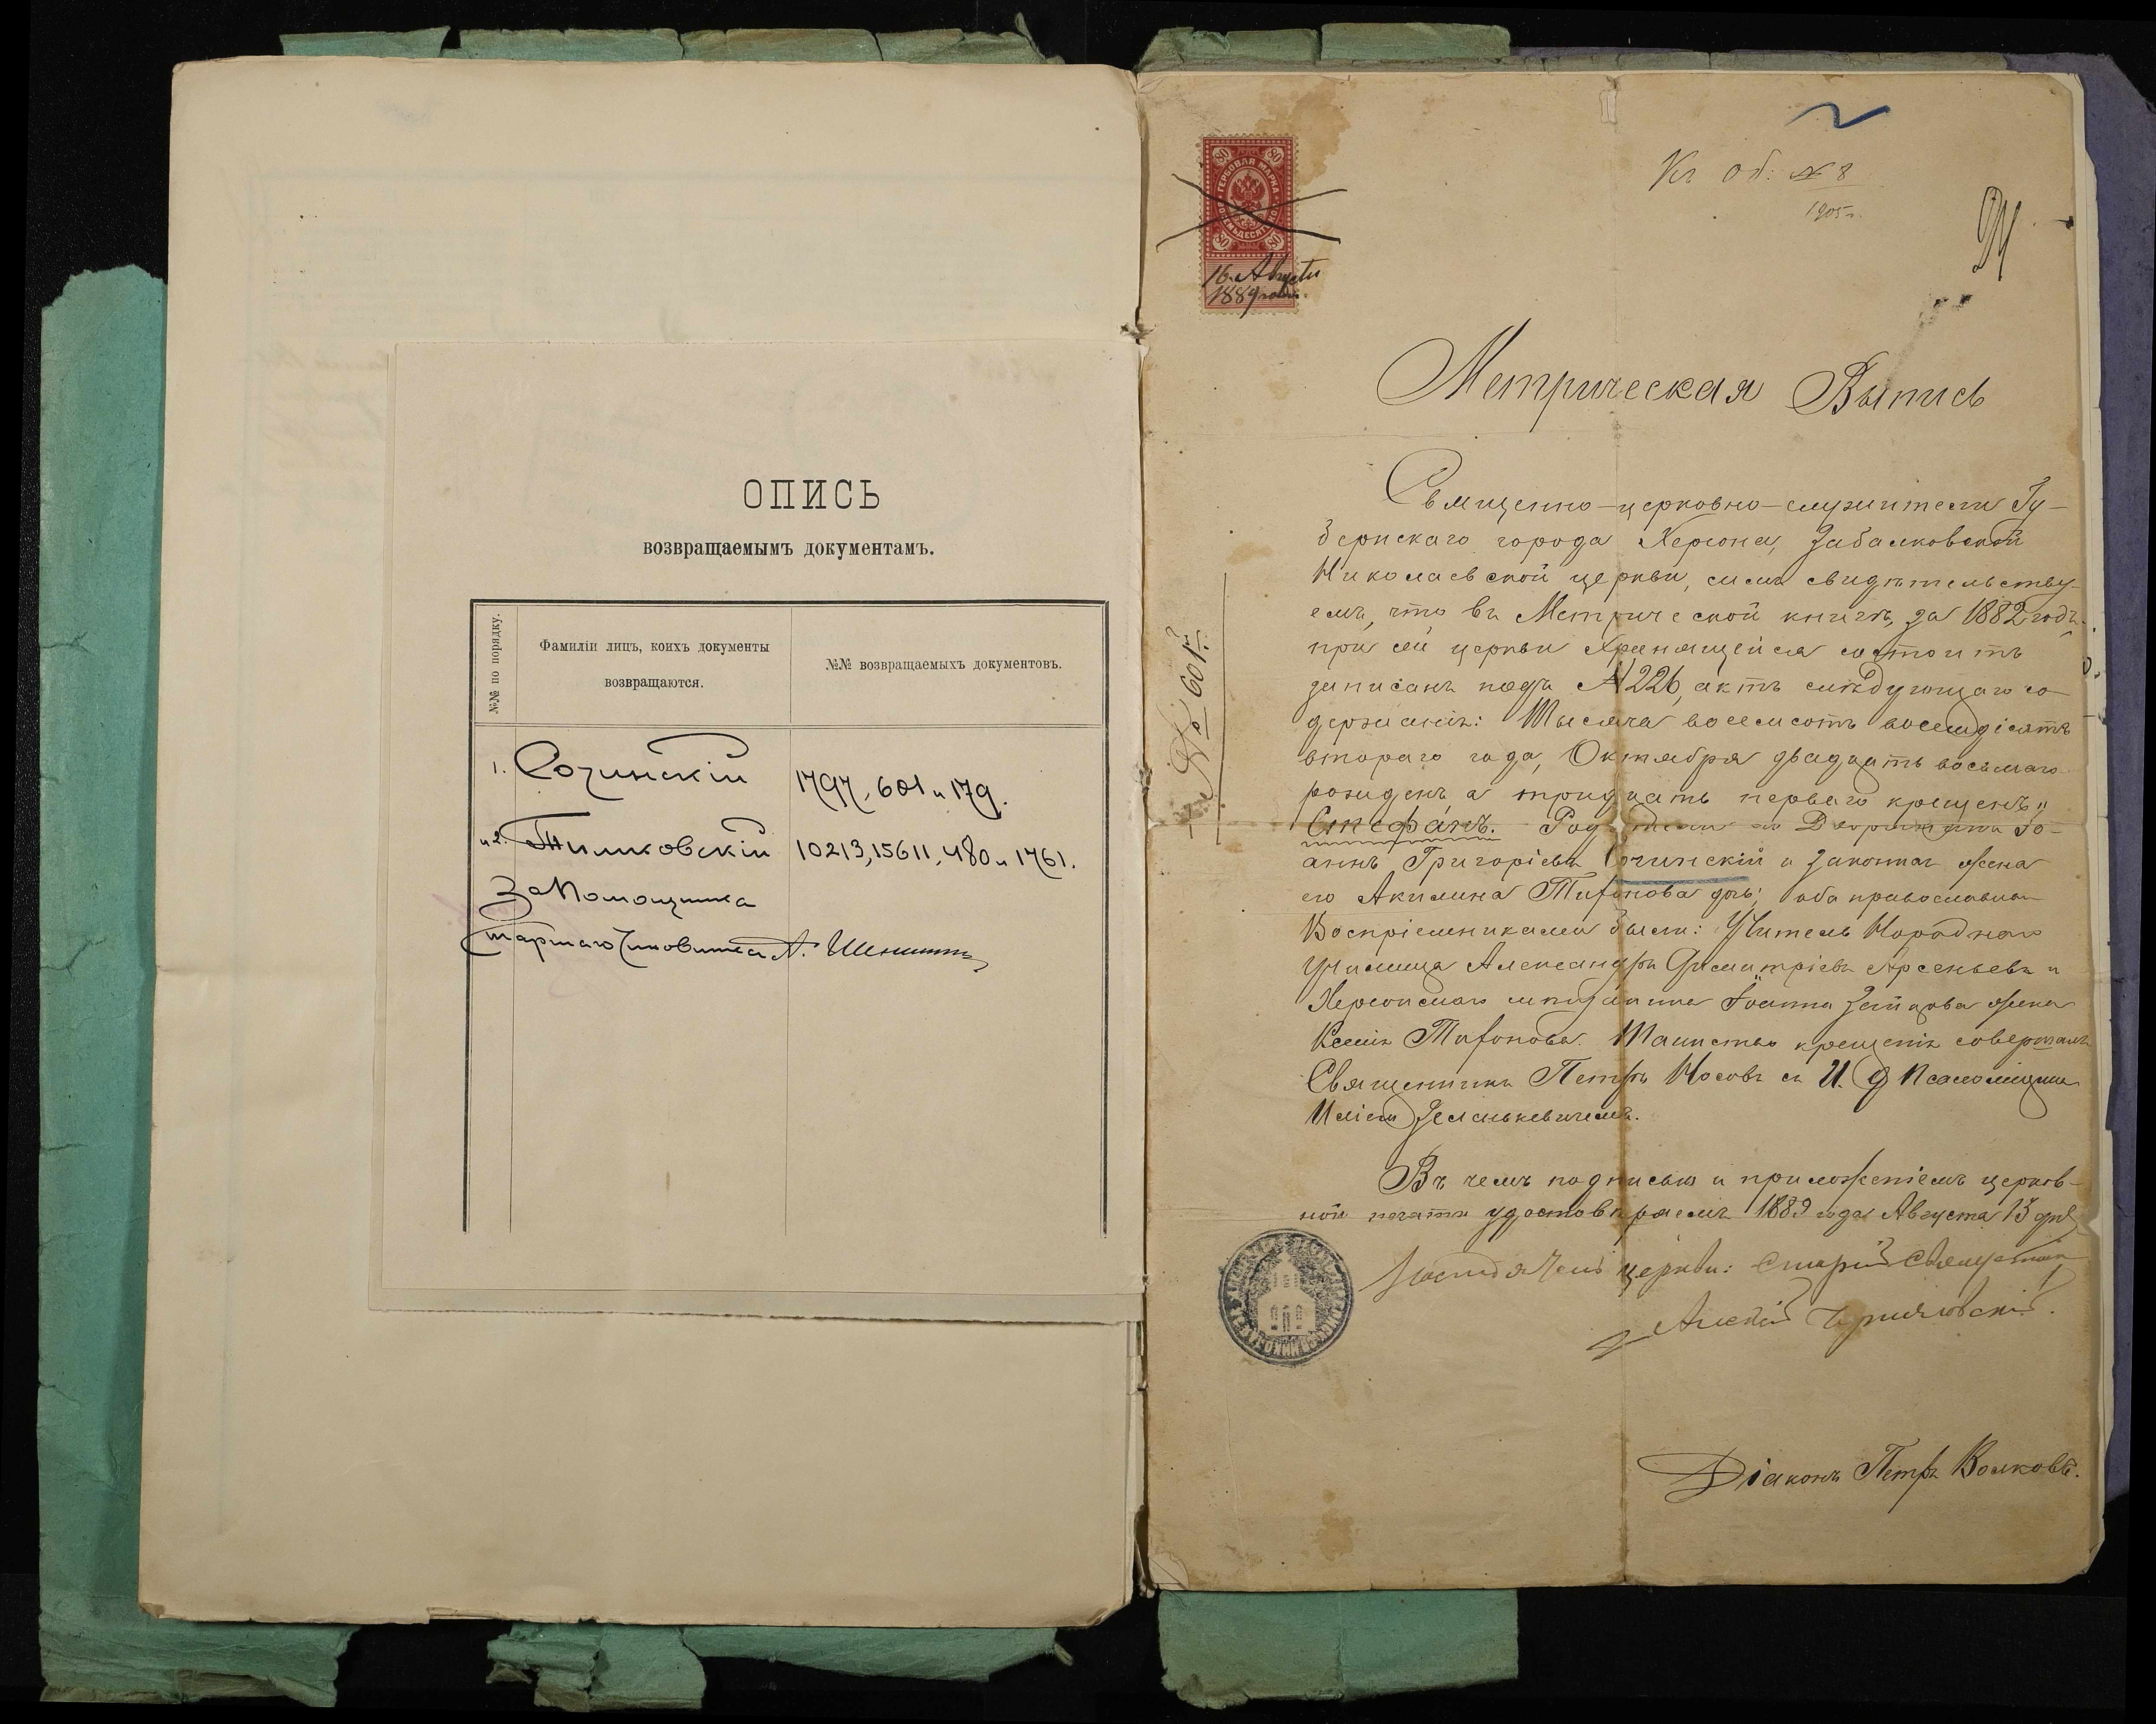 ОПИСЬ
возвращаемымъ документамъ.
№№ по порядку.
Фамиліи лицъ, коихъ документы
возвращаются.
№№ возвращаемыхъ документовъ.
1. Сочинскій 1797, 601 и 179.
и 2. Тимковскій 10213, 15611, 480 и 1761.
За Помощника
Старшаго Чиновника А.
Кг об: № 8
1905 г.
ГЕРБОВАЯ МАРКА
80
16 Августа
1889 года.
№ 601.
Метрическая Выпись
Священно-церковно-служители Гу-
бернскаго города Херсона, Забалковской
Николаевской церкви, симъ свидѣтельству-
емъ, что въ Метрической книгѣ, за 1882 годъ,
при сей церкви хранящейся состоитъ
записанъ подъ №226, актъ слѣдующаго со-
держанія: Тысяча восемсотъ восемдесятъ
втораго года, Октября двадцать восьмаго
рожденъ а тридцать перваго крещенъ „
Стефанъ. Родители его Дворянинъ Іо-
аннъ Григоріевъ Сочинскій и законная жена
его Акилина Тифонова дочь; оба православнаго
Воспріемниками были: Учитель Народнаго
училища Александръ Димитріевъ Арсеньевъ и
Херсонскаго мѣщанина Іоанна Зайцова жена
Ксенія Тифонова. Таинство крещенія совершалъ
Священникъ Петръ Носовъ съ И. Д Псаломщика
Иліею Зеланькевичемъ.
Въ чемъ подписью и приложеніемъ церков-
ной печати удостовѣряемъ 1889 года Августа 13 дня
Настоятель церкви: Старшій Священникъ
Діаконъ Петръ Волковъ.